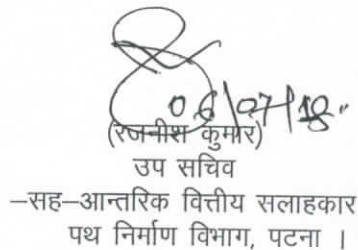 06/07/18
(रजनीश कुमार)
उप सचिव
–सह–आन्तरिक वित्तीय सलाहकार
पथ निर्माण विभाग, पटना ।